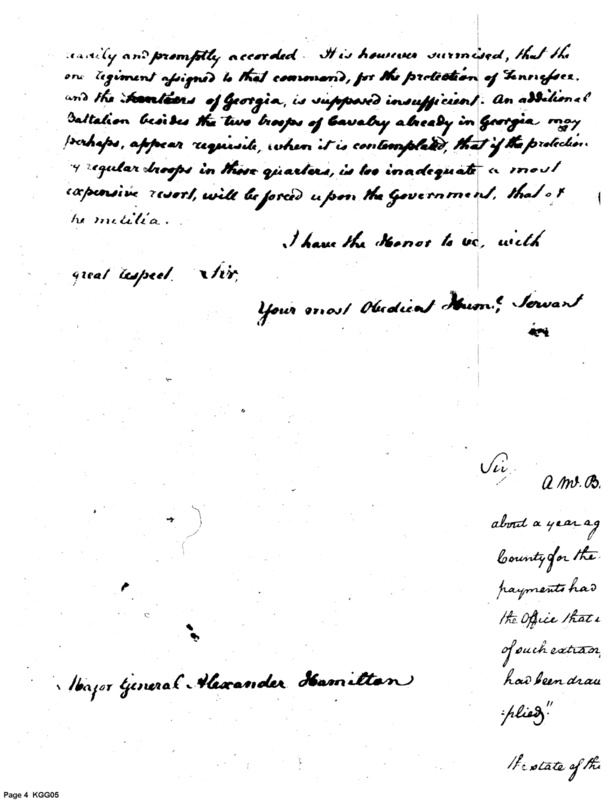 readily and promptly accorded. It is however surmised, that the
one regiment assigned to that command, for the protection of Tennessee.
and the frontiers of Georgia, is supposed insufficient. An additional
Battalion besides the two troops of Cavalry already in Georgia may
perhaps, appear requisite, when it is contemplated, that if the protection
by regular troops in those quarters, is too inadequate a most
expensive resort, will be forced upon the Government, that of
the militia.
I have the Honor to be, with
great respect. Sir,
Your most Obedient Huml. Servant
Major General Alexander Hamilton
Sir,
A Mr. B
about a year ag
County for the
payments had
the Office that
of such extraor
had been draw
:plied"
the state of the
Page 4 KGG05